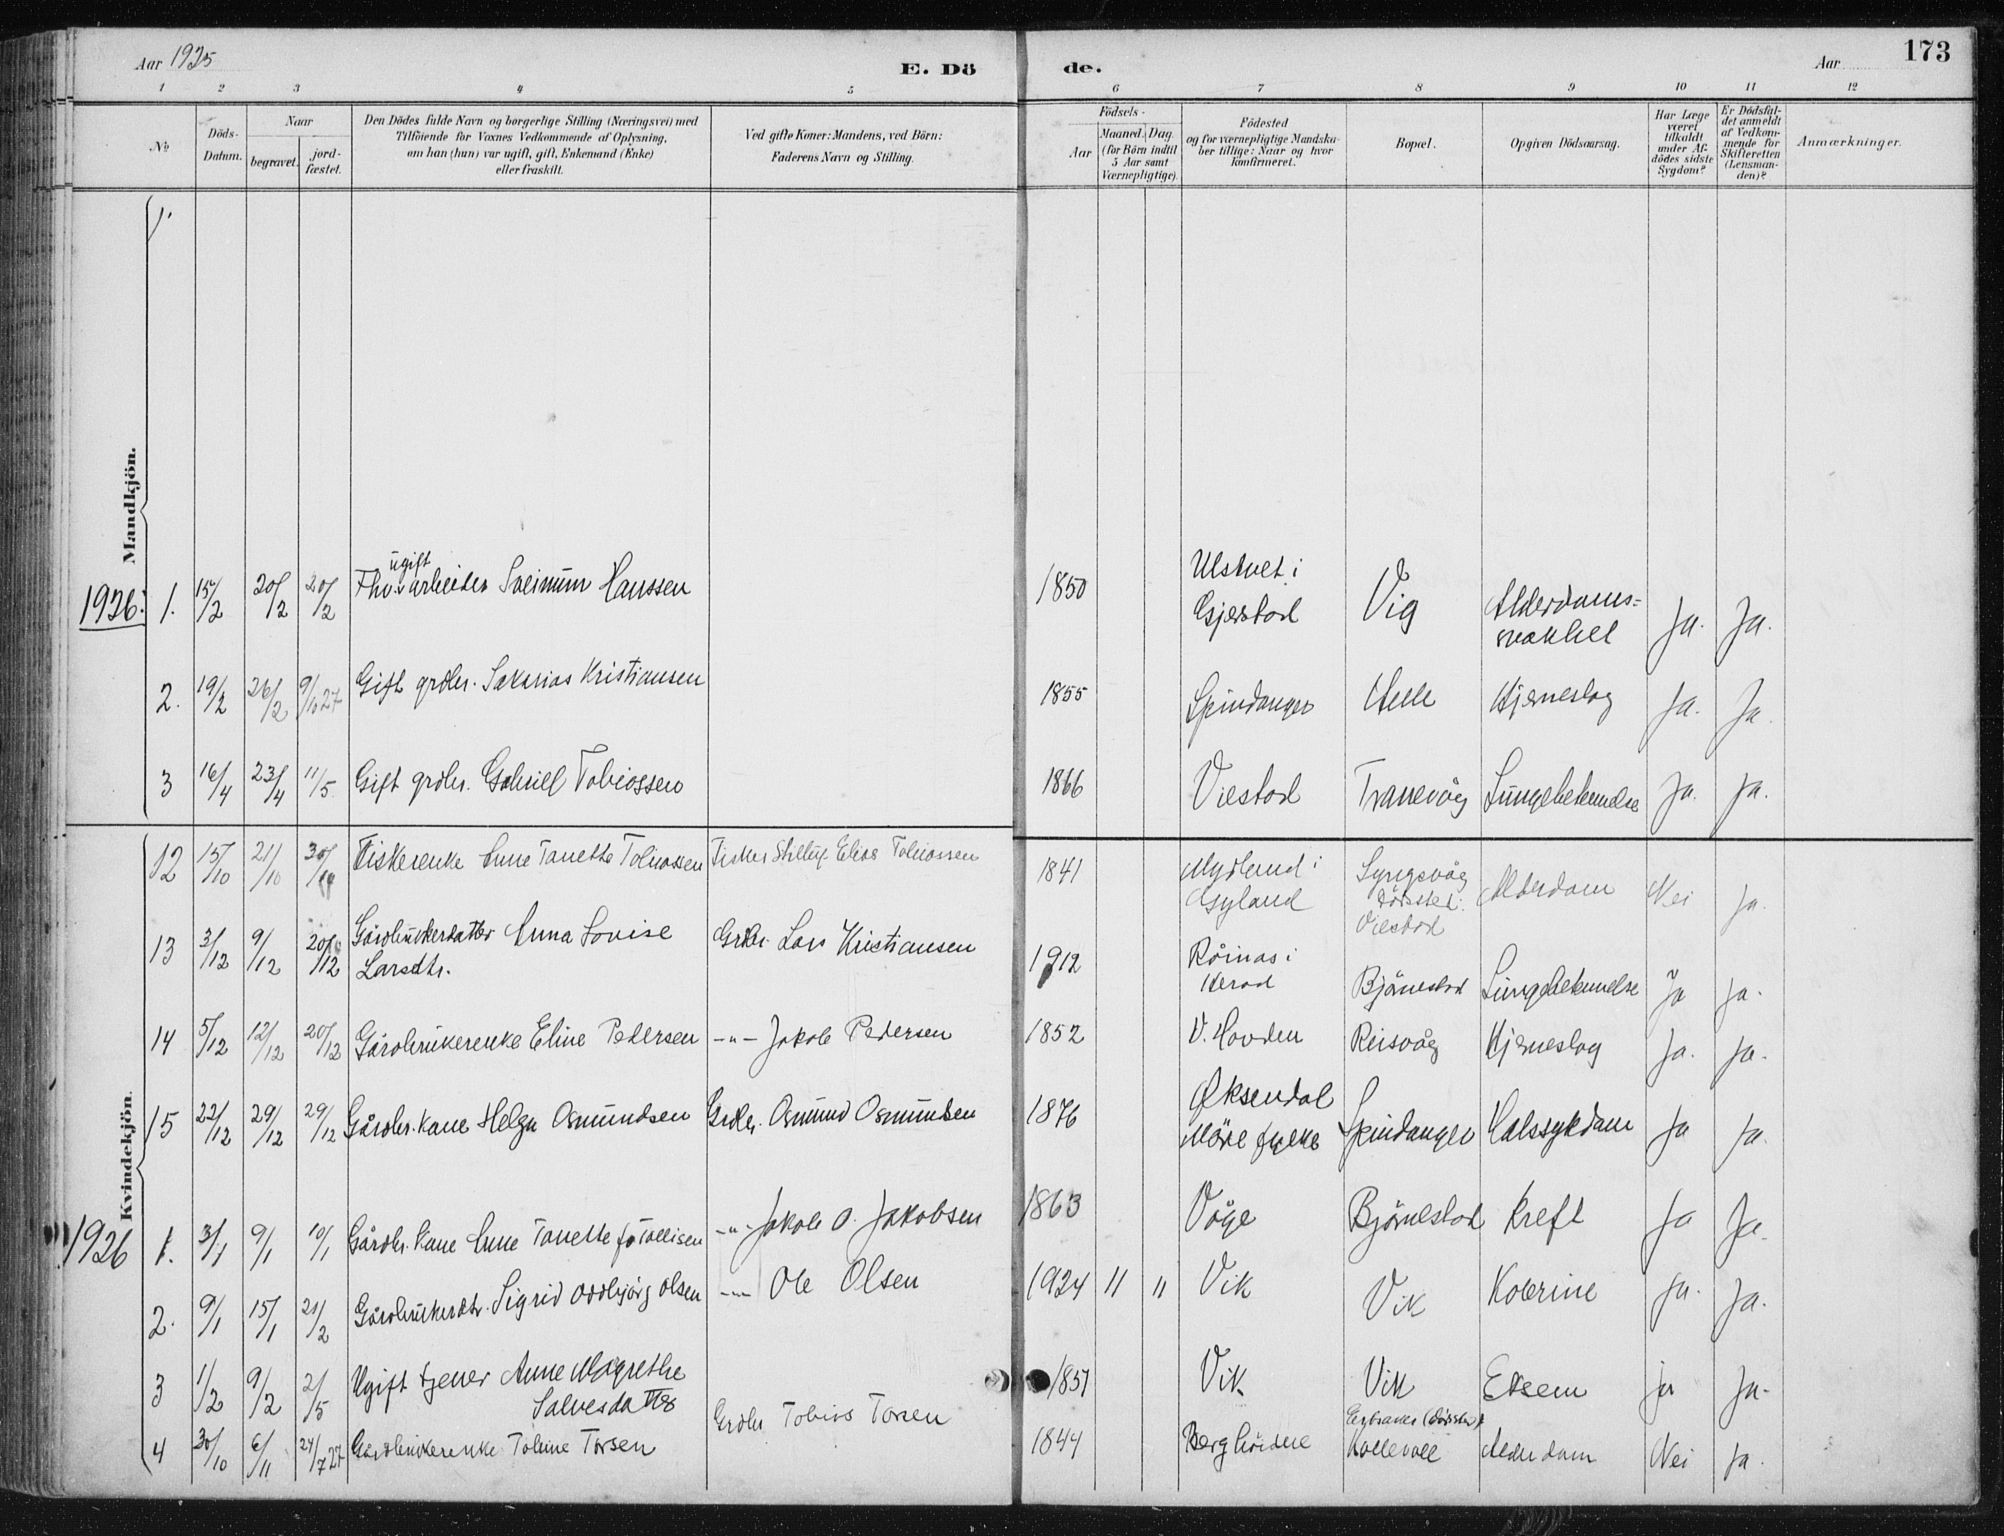 Aar 1925
E. Dö
de.
Aar
173
1 2 3 4 5 6 7 8 9 10 11 12
No
Döds-Datum.
Naar
begravet.
jord-fæstet.
Den Dödes fulde Navn og borgerlige Stilling (Næringsvei) med
Tilföiende for Voxnes Vedkommende af Oplysning,
om han (hun) var ugift, gift, Enkemand (Enke)
eller fraskilt.
Ved gifte Koner: Mandens, ved Börn:
Faderens Navn og Stilling.
Födsels-
Aar
Maaned. Dag.
(for Börn indtil
5 Aar samt
Værnepligtige).
Födested
og for værnepligtige Mandska-
ber tillige: Naar og hvor
konfirmeret.
Bopæl.
Opgiven Dödsaarsag.
Har Læge
været
tilkaldt
under Af-
dödes sidste
Sygdom?
Er Dödsfal-
det anmeldt
af Vedkom-
mende for
Skifteretten
(Lensman-
den)?
Anmærkninger.
Mandkjön.
1926: 1. 15/2 20/2 20/2 Fhv. ugift arbeider Sveinum Hanssen 1850 Ulstvet i Gjerstad Vig Alderdoms-svakhet Ja. Ja.
2. 19/2 26/2 9/10 27 Gift grdbr. Sakarias Kristiansen 1855 Spindanger Helle Hjerneslag Ja. Ja.
3 16/4 23/4 11/5 Gift grdbr. Gabriel Tobiassen 1866 Viestad Tranevåg Lungebetennelse Ja. Ja.
Kvindekjön.
12 15/10 21/10 30/10 Fiskerenke Anne Tanette Tobiassen Fisker Elias Tobiassen 1841 Mydland i Gyland Lyngsvåg Dødssted: Viestad Alderdom Nei Ja.
13 3/12 9/12 20/12 Gårdbrukerdatter Anna Lovise Larsdtr. Grdbr. Lars Kristiansen 1912 Röinas i Herad Bjørnestad Lungebetennelse Ja Ja.
14 5/12 12/12 20/12 Gårdbrukerenke Eline Pedersen -"- Jakob Pedersen 1852 V. Hovden Reisvåg Hjerneslag Ja. Ja.
15 22/12 29/12 29/12 Gårdbr. kone Helga Osmundsen Grdbr. Osmund Osmundsen 1876 Øksendal Möre fylke Spindanger Halssykdom Ja Ja.
1926 1. 3/1 9/1 10/1 Gårdbr. kone Anne Tanette f. Tollisen -"- Jakob O. Jakobsen 1863 Våge Bjørnestad Kreft Ja Ja.
2. 9/1 15/1 21/2 Gårdbrukerdtr. Sigrid Oddbjörg Olsen -"- Ole Olsen 1924 11 11 Vik Vik Kolerine Ja. Ja.
3 1/2 9/2 2/5 Ugift tjener Anne Magrethe Salvesdatter 1851 Vik Vik Eksem ja Ja.
4 30/10 6/11 24/7 27 Gårdbrukerenke Tobine Torsen Grdbr Tobias Torsen 1844 Kollevoll Alderdom Nei Ja.